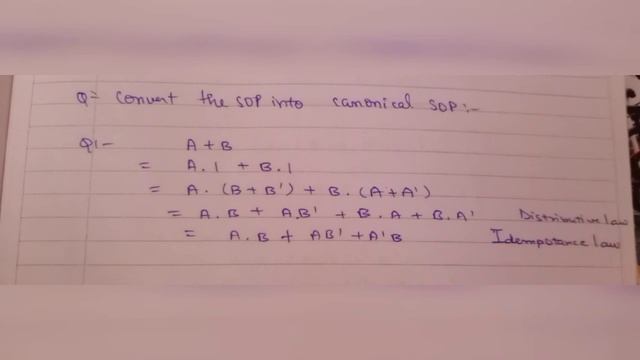 Q= Convert the SOP into canonical SOP:-
Q1- A + B
= A . 1 + B . 1
= A . (B + B') + B . (A + A')
= A . B + A.B' + B . A + B . A' Distributive law
= A . B + AB' + A'B Idempotance law